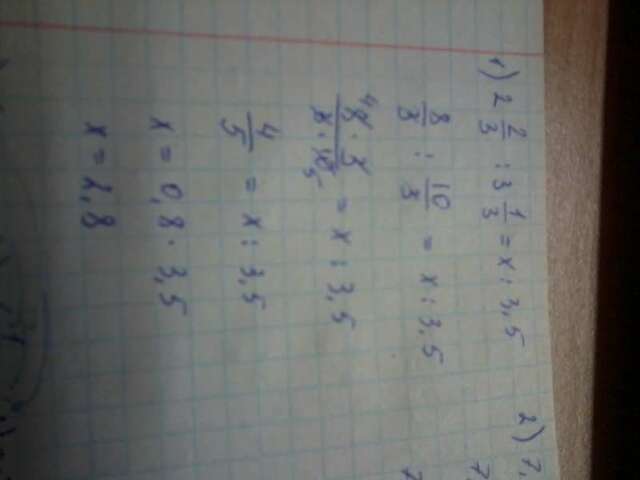 1) 2 2/3 : 3 1/3 = x : 3,5
8/3 : 10/3 = x : 3,5
8 4 · 3 / 3 · 10 5 = x : 3,5
4/5 = x : 3,5
x = 0,8 · 3,5
x = 2,8
2) 7,
7